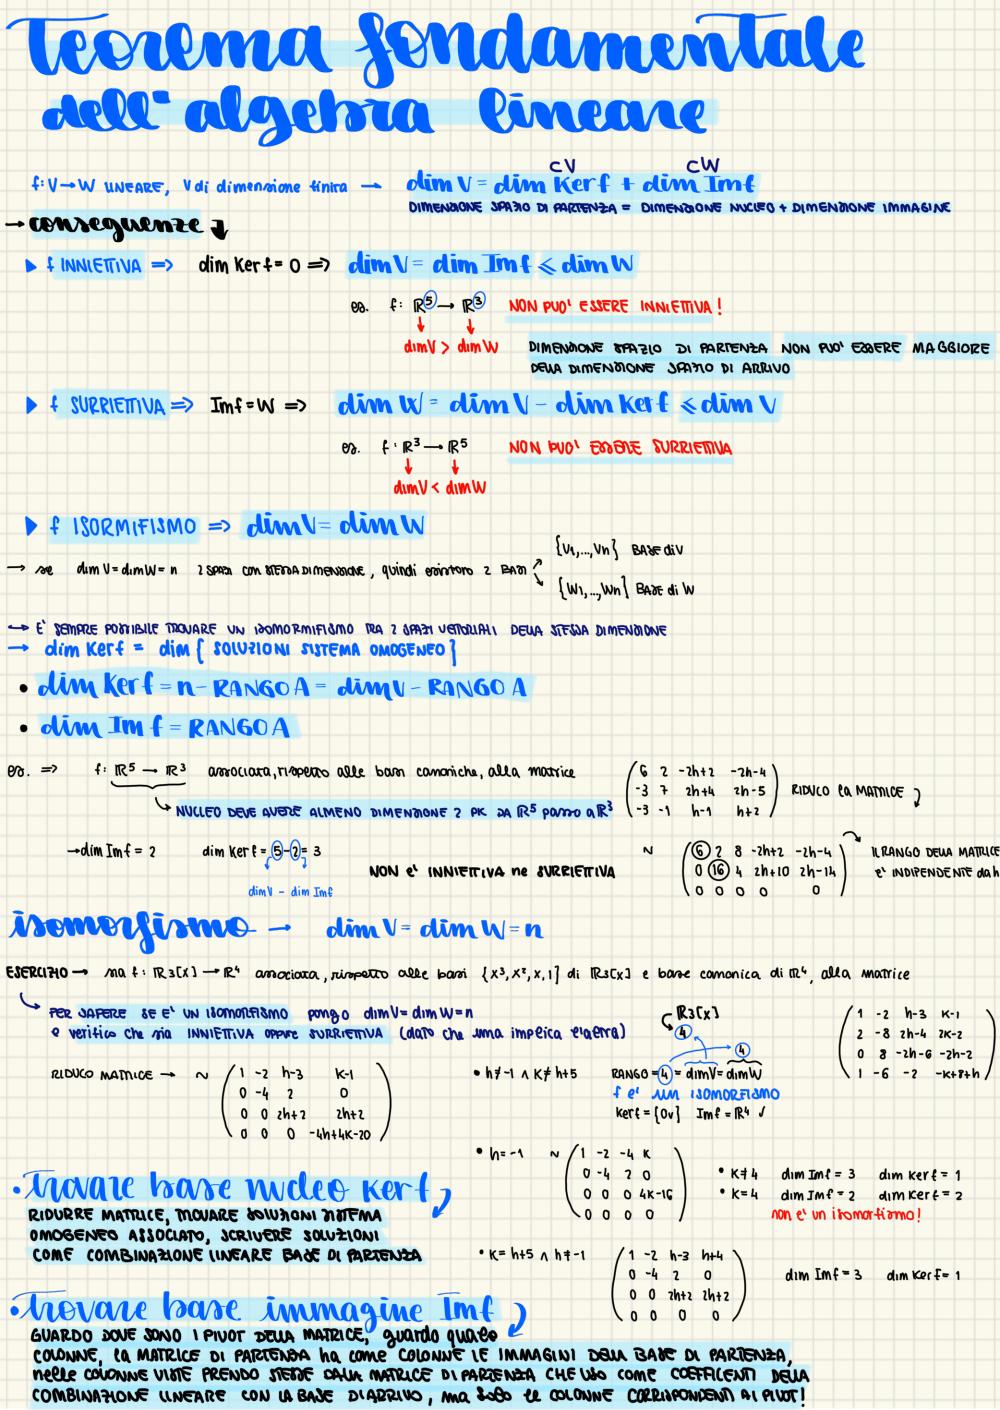 Teorema fondamentale
dell'algebra lineare
⊂V ⊂W
f: V→W LINEARE, V di dimensione finita → dim V = dim Ker f + dim Im f
DIMENSIONE SPAZIO DI PARTENZA = DIMENSIONE NUCLEO + DIMENSIONE IMMAGINE
→ conseguenze
▶ f INNIETTIVA => dim Ker f = 0 => dim V = dim Im f ≤ dim W
es. f: ℝ⁵ → ℝ³ NON PUO' ESSERE INNIETTIVA!
dim V > dim W DIMENSIONE SPAZIO DI PARTENZA NON PUO' ESSERE MAGGIORE
DELLA DIMENSIONE SPAZIO DI ARRIVO
▶ f SURRIETTIVA => Im f = W => dim W = dim V - dim Ker f ≤ dim V
es. f: ℝ³ → ℝ⁵ NON PUO' ESSERE SURRIETTIVA
dim V < dim W
▶ f ISORMIFISMO => dim V = dim W
{V1,...,Vn} BASE di V
→ se dim V = dim W = n 2 SPAZI CON STESSA DIMENSIONE, quindi esistono 2 BASI
{W1,...,Wn} BASE di W
→ E' SEMPRE POSSIBILE TROVARE UN ISOMORMIFISMO TRA 2 SPAZI VETTORIALI DELLA STESSA DIMENSIONE
→ dim Ker f = dim { SOLUZIONI SISTEMA OMOGENEO }
• dim Ker f = n - RANGO A = dim V - RANGO A
• dim Im f = RANGO A
es. => f: ℝ⁵ → ℝ³ associata, rispetto alle basi canoniche, alla matrice
6 2 -2h+2 -2h-4
-3 7 2h+4 2h-5
-3 -1 h-1 h+2
RIDUCO la MATRICE
NUCLEO DEVE AVERE ALMENO DIMENSIONE 2 PK DA ℝ⁵ passo a ℝ³
→ dim Im f = 2 dim Ker f = 5-2 = 3
dim V - dim Im f
NON e' INNIETTIVA ne SURRIETTIVA
~
6 2 8 -2h+2 -2h-4
0 16 4 2h+10 2h-14
0 0 0 0 0
IL RANGO DELLA MATRICE
e' INDIPENDENTE da h
isomorfismo → dim V = dim W = n
ESERCIZIO → sia f: ℝ3[x] → ℝ⁴ associata, rispetto alle basi {x³, x², x, 1} di ℝ3[x] e base canonica di ℝ⁴, alla matrice
1 -2 h-3 K-1
2 -8 2h-4 2K-2
0 8 -2h-6 -2h-2
1 -6 -2 -K+8+h
PER SAPERE SE E' UN ISOMORFISMO pongo dim V = dim W = n
e verifico che sia INNIETTIVA oppure SURRIETTIVA (dato che una implica l'altra)
RIDUCO MATRICE → ~
1 -2 h-3 K-1
0 -4 2 0
0 0 2h+2 2h+2
0 0 0 -4h+4K-20
ℝ3[x]
4
4
• h≠-1 ∧ K≠h+5 RANGO = 4 = dim V = dim W
f e' un ISOMORFISMO
Ker f = {0v} Im f = ℝ⁴ ✓
• h = -1 ~
1 -2 -4 K
0 -4 2 0
0 0 0 4K-16
0 0 0 0
• K≠4 dim Im f = 3 dim Ker f = 1
• K=4 dim Im f = 2 dim Ker f = 2
non e' un isomorfismo!
• K = h+5 ∧ h≠-1
1 -2 h-3 h+4
0 -4 2 0
0 0 2h+2 2h+2
0 0 0 0
dim Im f = 3 dim Ker f = 1
• Trovare base nucleo Ker f
RIDURRE MATRICE, TROVARE SOLUZIONI SISTEMA
OMOGENEO ASSOCIATO, SCRIVERE SOLUZIONI
COME COMBINAZIONE LINEARE BASE DI PARTENZA
• Trovare base immagine Im f
GUARDO DOVE SONO I PIVOT DELLA MATRICE, guardo quale
COLONNE, la MATRICE DI PARTENZA ha come COLONNE LE IMMAGINI DELLA BASE DI PARTENZA,
nelle COLONNE VISTE PRENDO STESSE DALLA MATRICE DI PARTENZA CHE USO COME COEFFICENTI DELLA
COMBINAZIONE LINEARE CON LA BASE DI ARRIVO, ma SOLO LE COLONNE CORRISPONDENTI AI PIVOT!